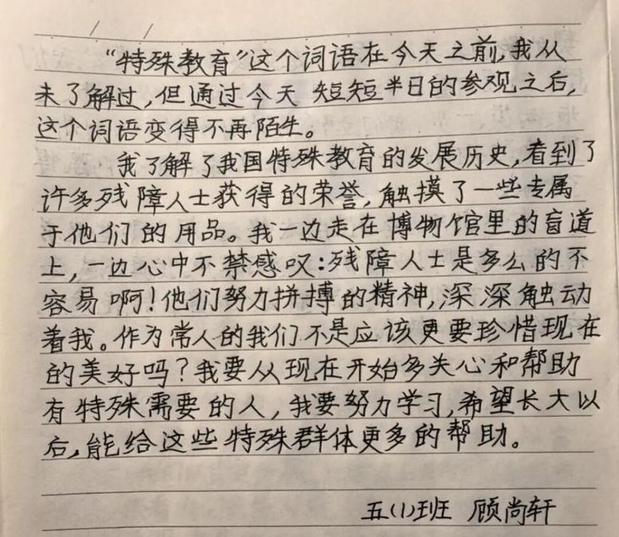 “特殊教育”这个词语在今天之前,我从
未了解过,但通过今天短短半日的参观之后,
这个词语变得不再陌生。
我了解了我国特殊教育的发展历史,看到了
许多残障人士获得的荣誉,触摸了一些专属
于他们的用品。我一边走在博物馆里的盲道
上,一边心中不禁感叹:残障人士是多么的不
容易啊!他们努力拼搏的精神,深深触动
着我。作为常人的我们不是应该更要珍惜现在
的美好吗?我要从现在开始多关心和帮助
有特殊需要的人,我要努力学习,希望长大以
后,能给这些特殊群体更多的帮助。
五(1)班 顾尚轩